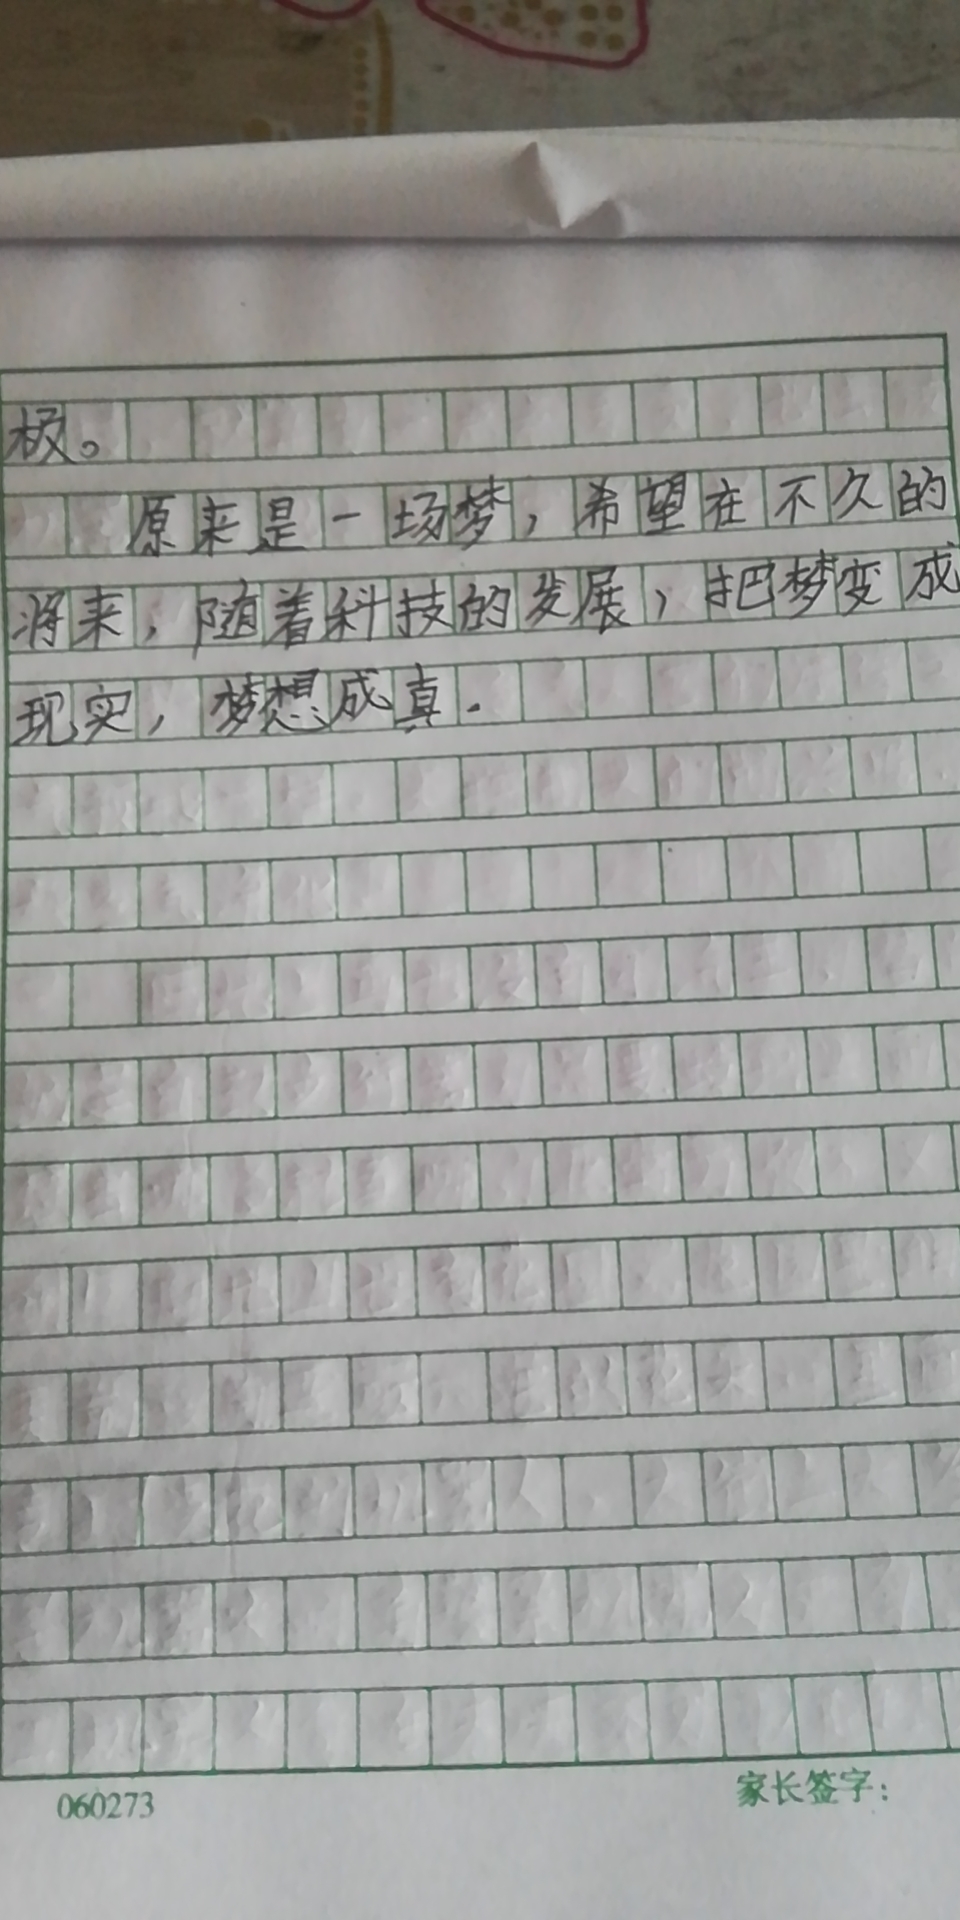 极。
原来是一场梦，希望在不久的
将来，随着科技的发展，把梦变成
现实，梦想成真.
060273
家长签字：